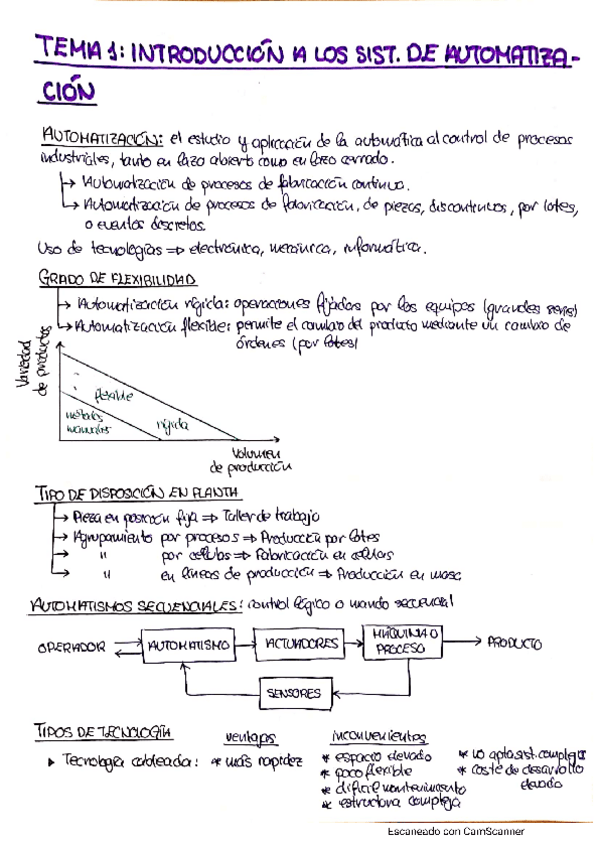 TEMA 1: INTRODUCCIÓN A LOS SIST. DE AUTOMATIZA-
CIÓN
AUTOMATIZACIÓN: el estudio y aplicación de la automática al control de procesos
industriales, tanto en lazo abierto como en lazo cerrado.
→ Automatización de procesos de fabricación continua.
→ Automatización de procesos de fabricación, de piezas, discontinuos, por lotes,
o eventos discretos.
Uso de tecnologías ⇒ electrónica, mecánica, informática.
GRADO DE FLEXIBILIDAD
→ Automatización rígida: operaciones fijadas por los equipos (grandes series)
→ Automatización flexible: permite el cambio del producto mediante un cambio de
órdenes (por lotes)
Variedad
de productos
flexible
métodos
manuales
rígida
Volumen
de producción
TIPO DE DISPOSICIÓN EN PLANTA
→ Pieza en posición fija ⇒ Taller de trabajo
→ Agrupamiento por procesos ⇒ Producción por lotes
→ " por células ⇒ Fabricación en células
→ " en líneas de producción ⇒ Producción en masa
AUTOMATISMOS SECUENCIALES: control lógico o mando secuencial
OPERADOR AUTOMATISMO ACTUADORES MÁQUINA O
PROCESO PRODUCTO
SENSORES
TIPOS DE TECNOLOGÍA ventajas inconvenientes
▸ Tecnología cableada: * más rapidez * espacio elevado * no apta sist. complejos
* poco flexible * coste de desarrollo
* difícil mantenimiento elevado
* estructura compleja
Escaneado con CamScanner